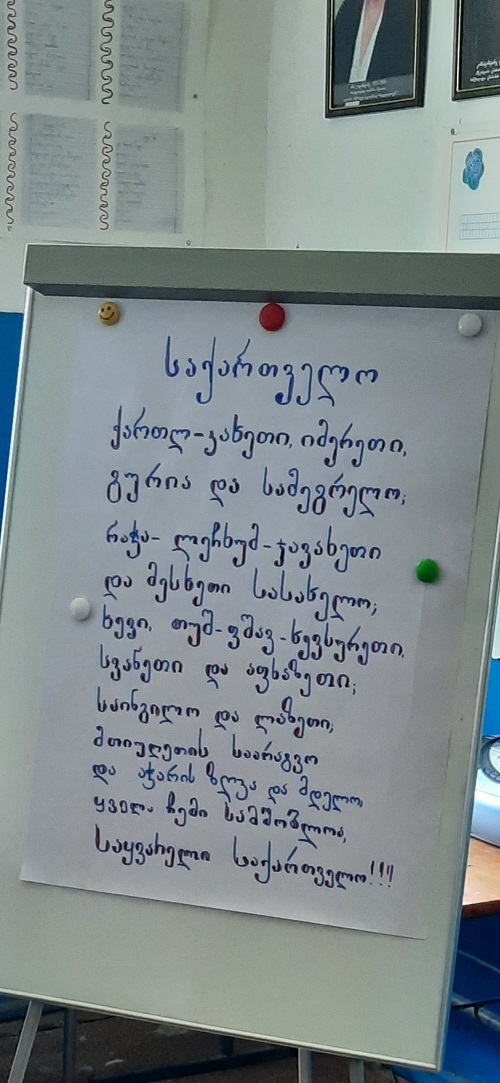 საქართველო
ქართლ-კახეთი, იმერეთი,
გურია და სამეგრელო;
რაჭა- ლეჩხუმ-ჯავახეთი
და მესხეთი სასახელო;
ხევი, თუშ-ფშავ-ხევსურეთი.
სვანეთი და აფხაზეთი;
საინგილო და ლაზეთი;
მთიულეთის საარაგვო
და აჭარის ზღვა და მდელო,
ყველა ჩემი სამშობლოა,
საყვარელი საქართველო!!!